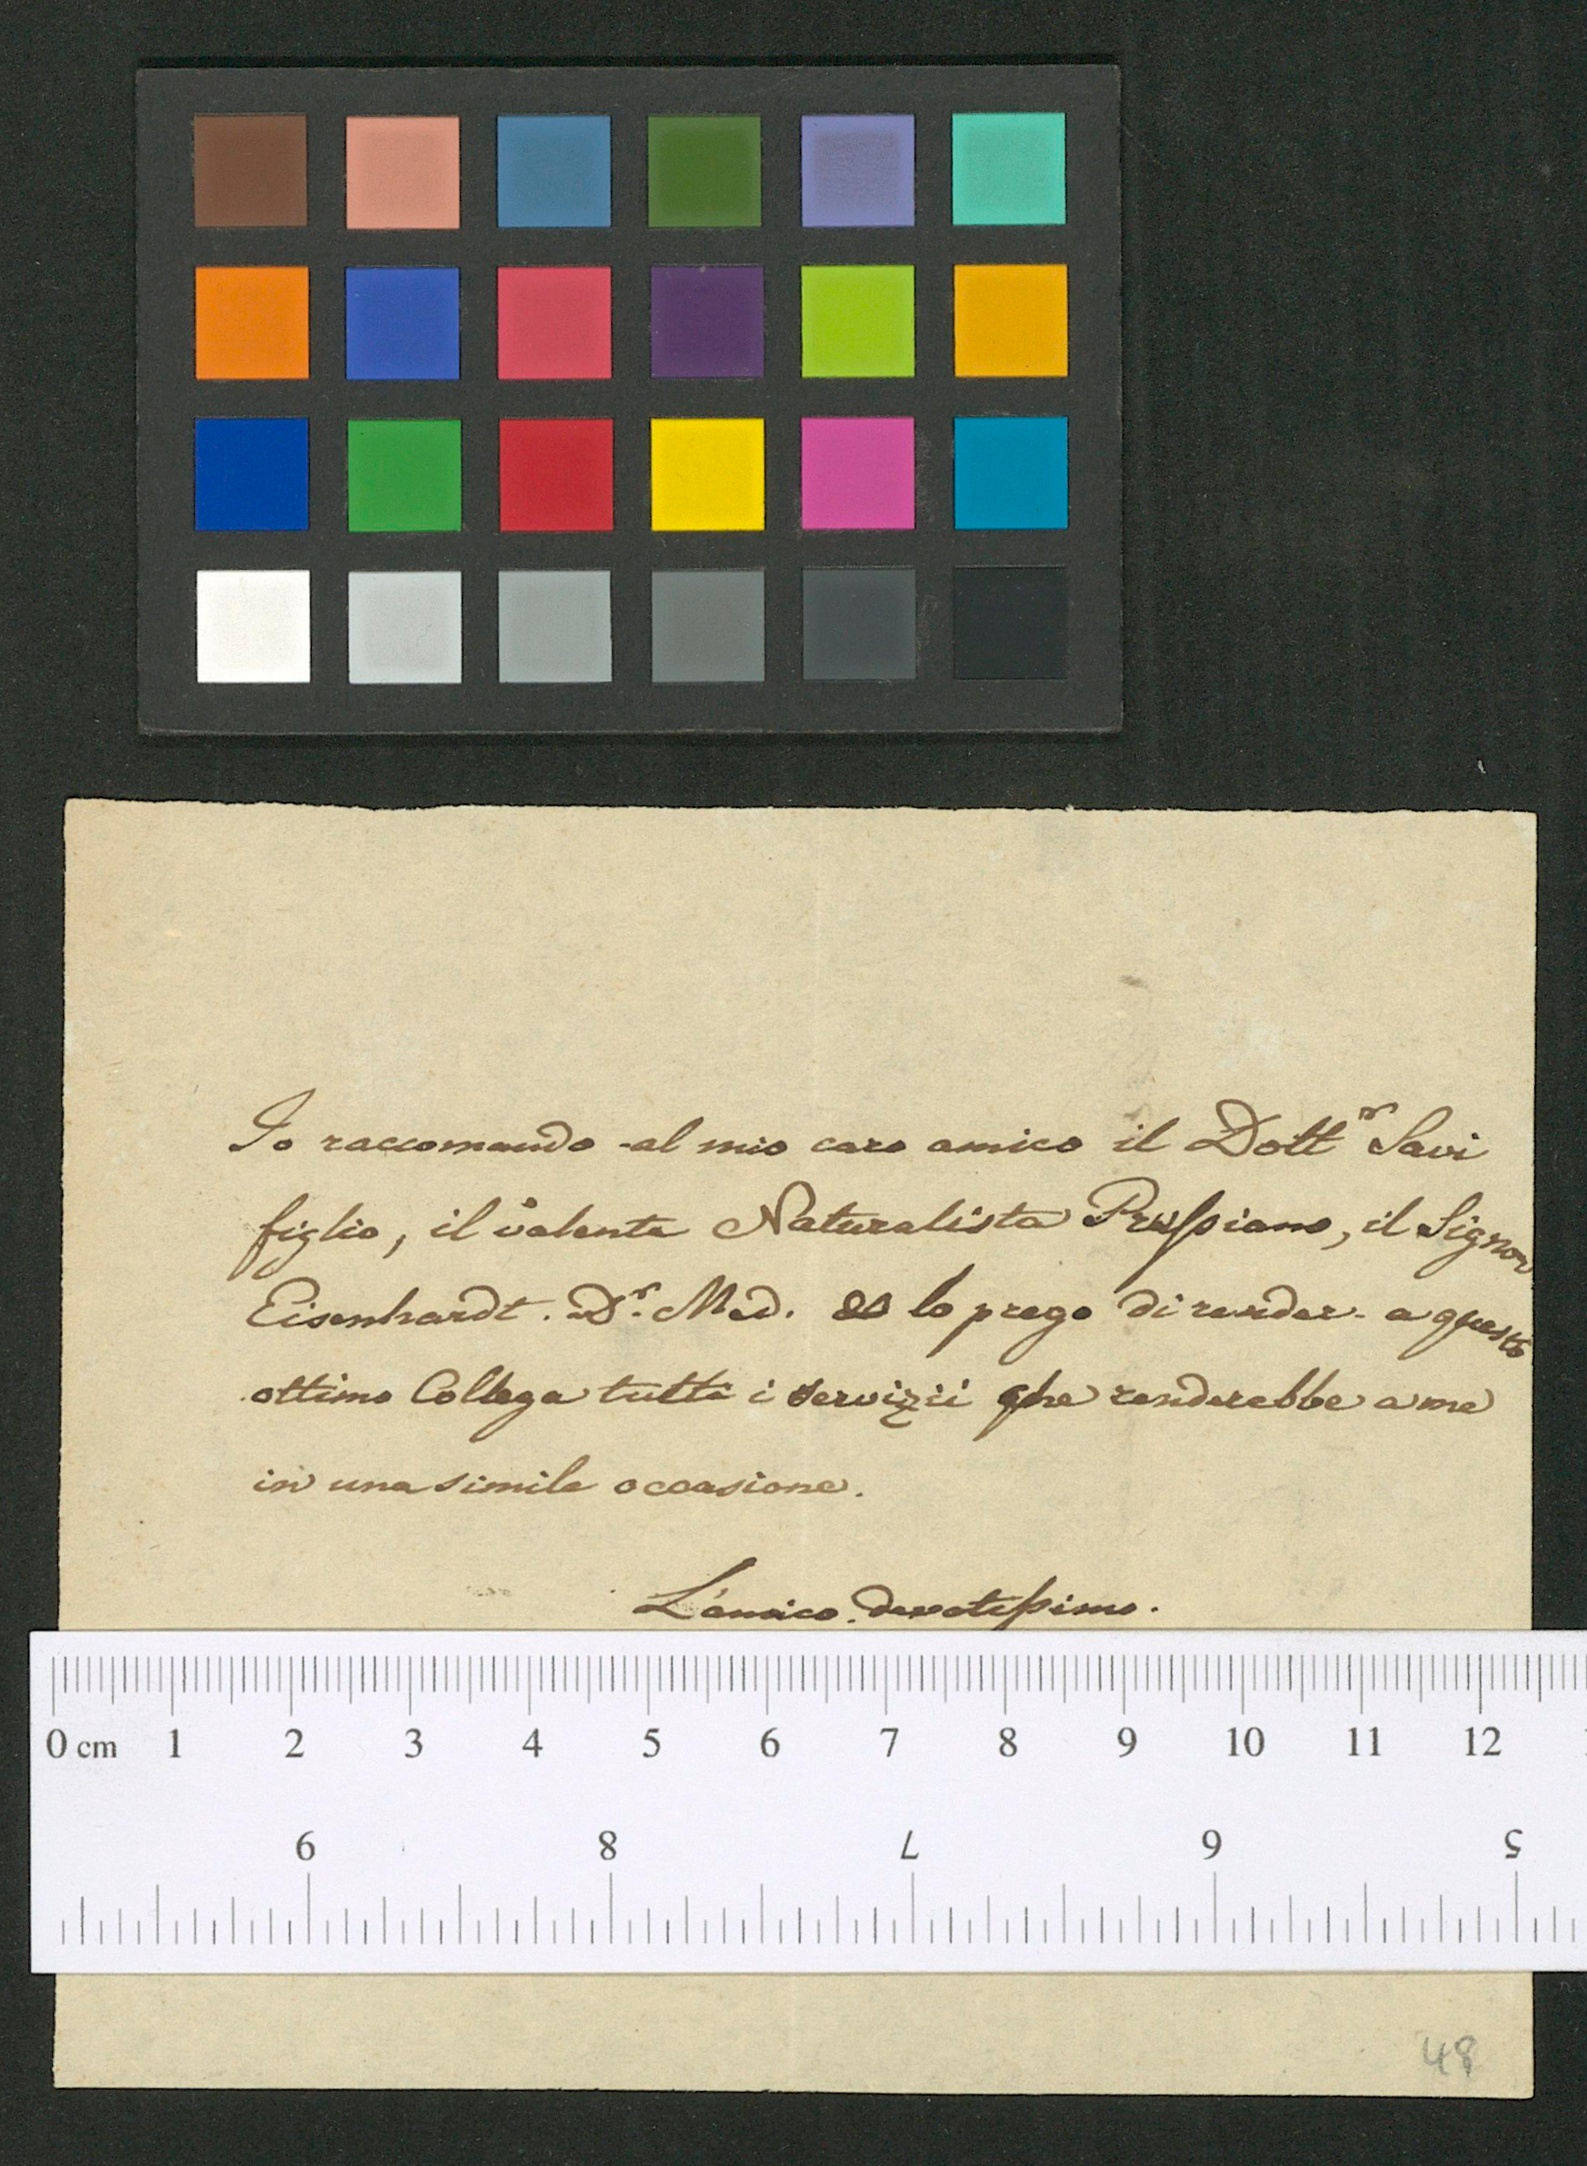 Io raccomando al mio caro amico il Dott.r Savi
figlio, il valente Naturalista Prussiano, il Signor
Eisenhardt. Dr. Med. lo prego di render a questo
ottimo Collega tutti i servizii che renderebbe a me
in una simile occasione.
L'amico devotissimo.
0 cm 1 2 3 4 5 6 7 8 9 10 11 12
9 8 7 6 5
48